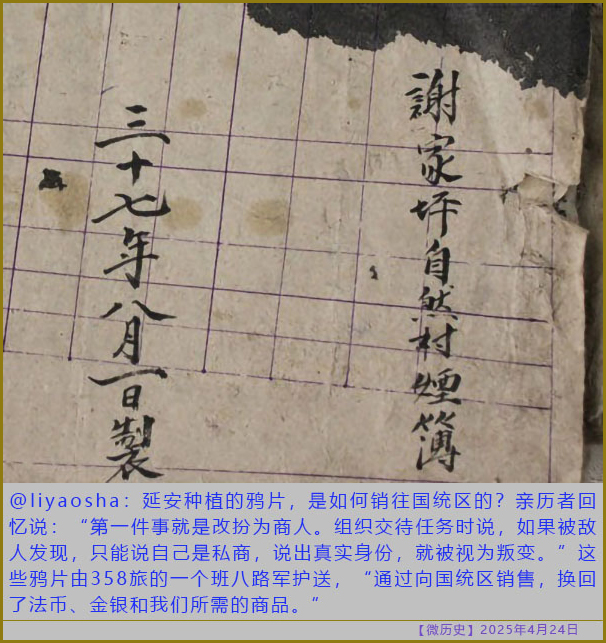 謝家坪自然村煙簿
三十七年八月一日製
@liyaosha：延安种植的鸦片，是如何销往国统区的？亲历者回
忆说：“第一件事就是改扮为商人。组织交待任务时说，如果被敌
人发现，只能说自己是私商，说出真实身份，就被视为叛变。”这
些鸦片由358旅的一个班八路军护送，“通过向国统区销售，换回
了法币、金银和我们所需的商品。”
【微历史】2025年4月24日